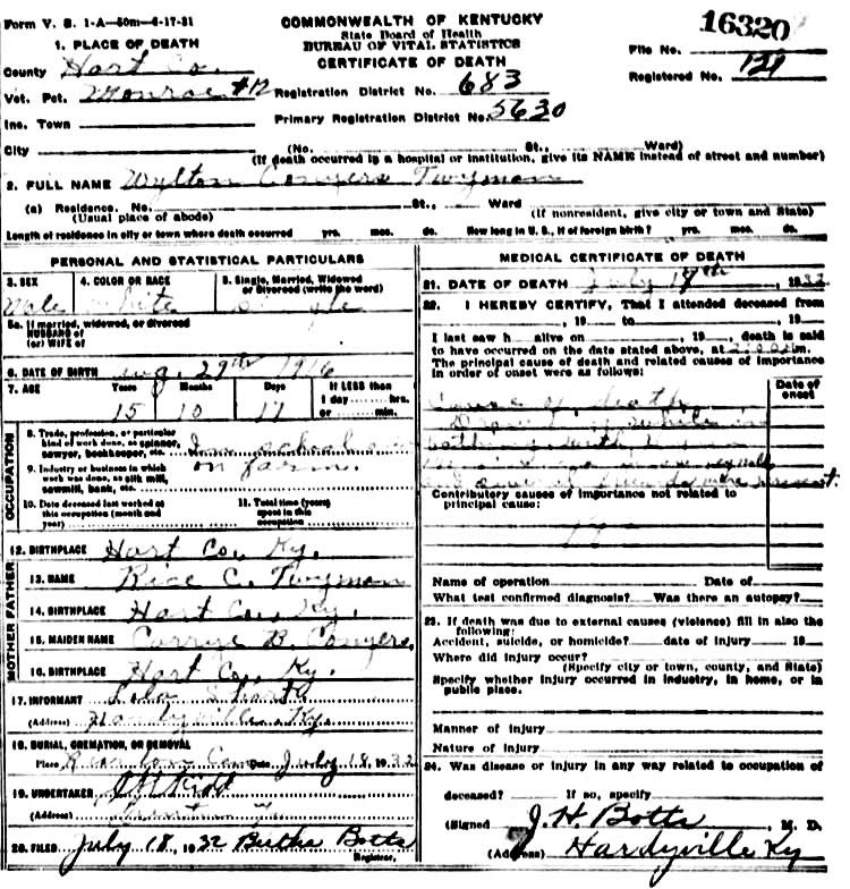 Form V. S. 1-A—50m—6-17-31
COMMONWEALTH OF KENTUCKY
State Board of Health
BUREAU OF VITAL STATISTICS
CERTIFICATE OF DEATH
16320
File No.
Registered No.
1. PLACE OF DEATH
County Hart Co.
Vot. Pct. Monroe #12
Registration District No. 683
Inc. Town
Primary Registration District No. 5630
City (No. St., Ward)
(If death occurred in a hospital or institution, give its NAME instead of street and number)
2. FULL NAME Wylton Conyers Twyman
(a) Residence. No. St., Ward
(Usual place of abode) (If nonresident, give city or town and State)
Length of residence in city or town where death occurred yrs. mos. ds. How long in U. S., if of foreign birth? yrs. mos. ds.
PERSONAL AND STATISTICAL PARTICULARS
3. SEX 4. COLOR OR RACE 5. Single, Married, Widowed
or Divorced (write the word)
Male White Single
5a. If married, widowed, or divorced
HUSBAND of
(or) WIFE of
6. DATE OF BIRTH Aug. 29th 1916
7. AGE Years Months Days If LESS than
1 day hrs.
15 10 17 or min.
OCCUPATION
8. Trade, profession, or particular
kind of work done, as spinner,
sawyer, bookkeeper, etc. In school
9. Industry or business in which on farm.
work was done, as silk mill,
sawmill, bank, etc.
10. Date deceased last worked at 11. Total time (years)
this occupation (month and spent in this
year) occupation
12. BIRTHPLACE Hart Co., Ky.
FATHER
13. NAME Rice C. Twyman
14. BIRTHPLACE Hart Co., Ky.
MOTHER
15. MAIDEN NAME Carrye B. Conyers
16. BIRTHPLACE Hart Co., Ky.
17. INFORMANT Lola
(Address) Hardyville Ky.
18. BURIAL, CREMATION, OR REMOVAL
Place Date July 18, 1932
19. UNDERTAKER
(Address)
20. FILED July 18, 1932 Butha Botts
Registrar.
MEDICAL CERTIFICATE OF DEATH
21. DATE OF DEATH July 17th, 1932
22. I HEREBY CERTIFY, That I attended deceased from
, 19 to , 19
I last saw h alive on , 19 , death is said
to have occurred on the date stated above, at m.
The principal cause of death and related causes of importance
in order of onset were as follows:
Date of
onset
Cause of death
while in
bathing
were present.
Contributory causes of importance not related to
principal cause:
Name of operation Date of
What test confirmed diagnosis? Was there an autopsy?
23. If death was due to external causes (violence) fill in also the
following:
Accident, suicide, or homicide? date of injury 19
Where did injury occur?
(Specify city or town, county, and State)
Specify whether injury occurred in industry, in home, or in
public place.
Manner of injury
Nature of injury
24. Was disease or injury in any way related to occupation of
deceased? If so, specify
(Signed J. H. Botts, M. D.
(Address) Hardyville Ky